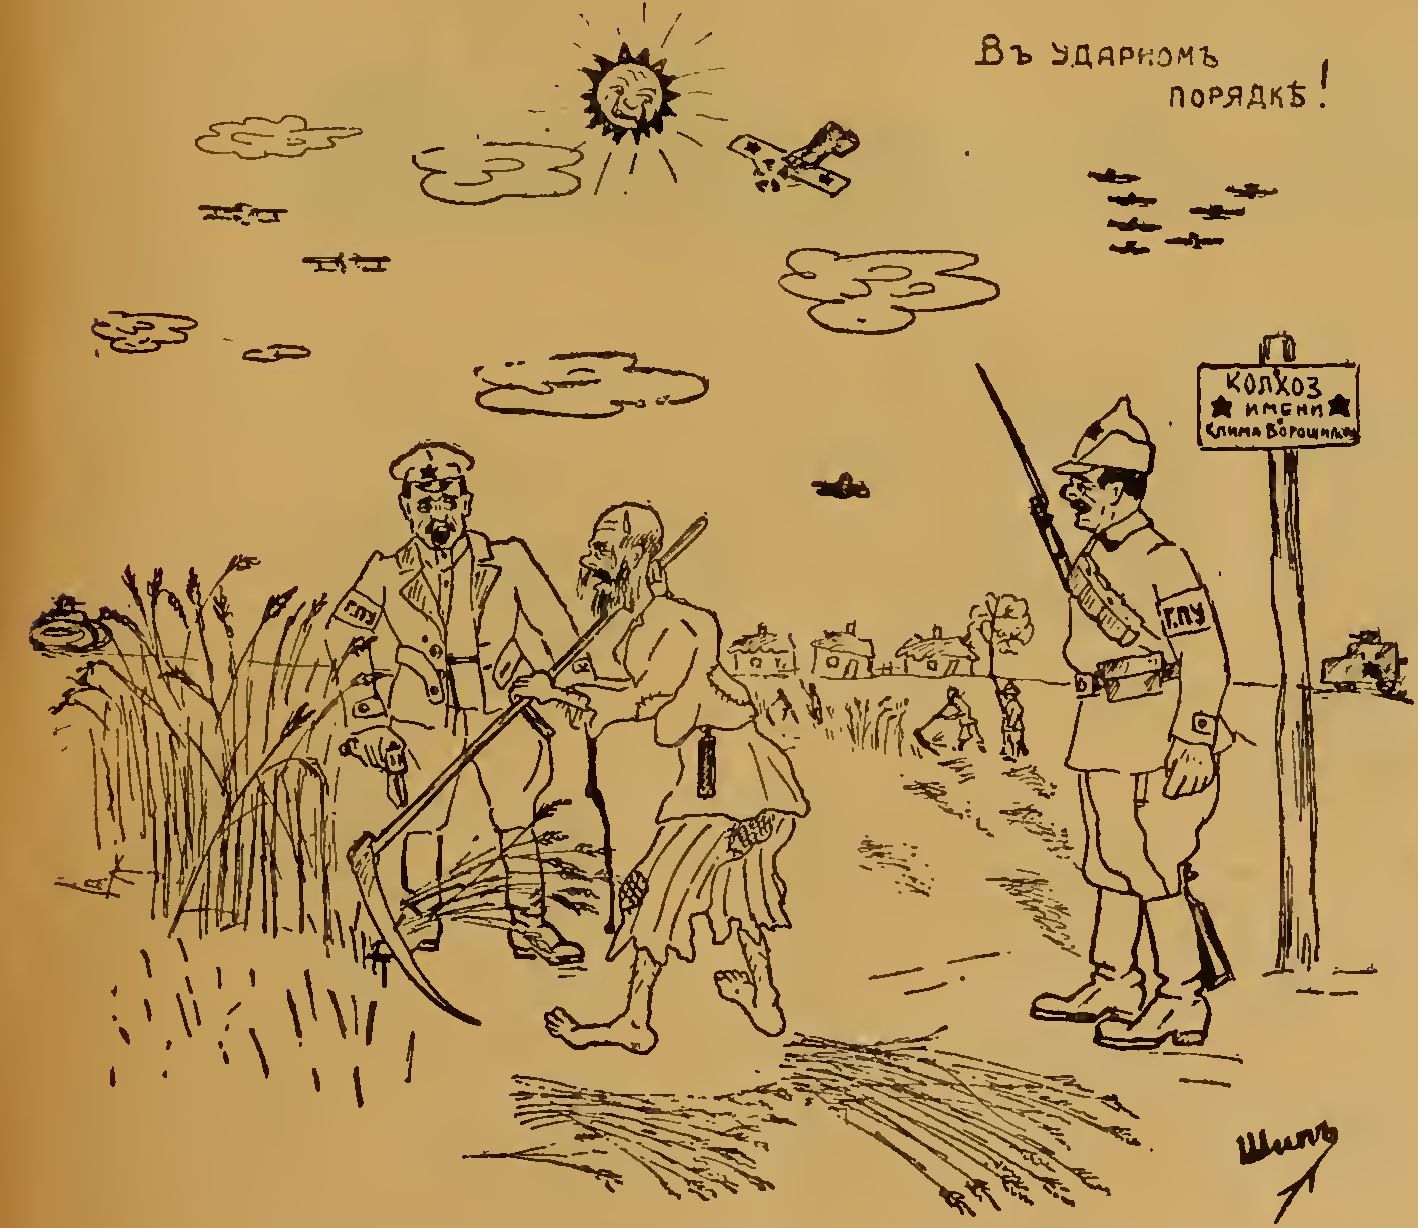 Въ ударномъ
порядкѣ!
КОЛХОЗ
ИМЕНИ
КЛИМА ВОРОШИЛОВА
ГПУ
Г.П.У
Шипъ